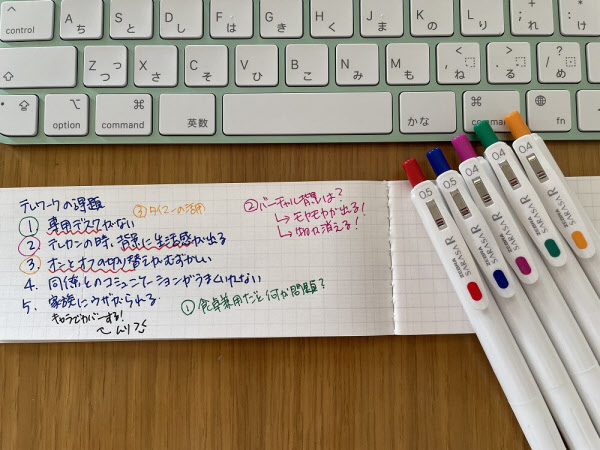 control
A ち
S と
D し
F は
G き
H く
J ま
K の
L り
+ ; れ
* : け
Z っ つ
X さ
C そ
V ひ
B こ
N み
M も
< , 、 ね
> . 。 る
? / ・ め
option
command
英数
かな
command
fn
テレワークの課題
① 専用デスクがない
② テレカンの時、背景に生活感が出る
③ オンとオフの切り替えがむずかしい
4. 同僚とのコミュニケーションがうまくいかない
5. 家族にウザがられる
キャラでカバーする!
③ タイマーの活用
② バーチャル背景は?
↳ モヤモヤが出る!
↳ 物が消える!
① 食卓兼用だと何が問題?
0.5
0.5
04
04
04
ZEBRA SARASA R
ZEBRA SARASA R
ZEBRA SARASA R
ZEBRA SARASA R
ZEBRA SARASA R